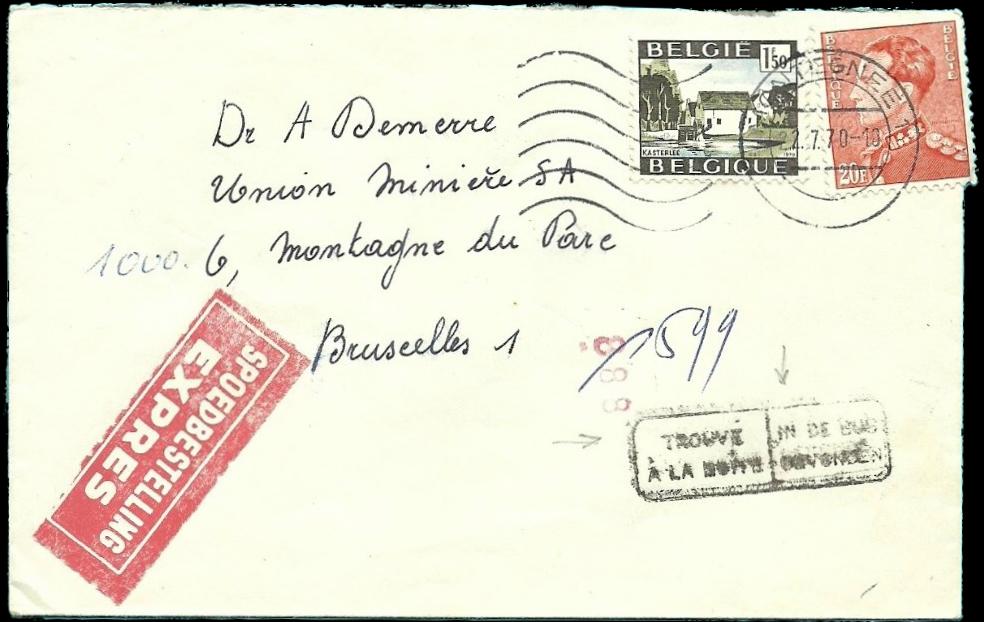 BELGIË 1F50
KASTERLEE
BELGIQUE
BELGIQUE BELGIË
20F
2.7.70-18
Dr A Demerre
Union Minière SA
1000. 6, Montagne du Parc
Bruxelles 1
1599
888
SPOEDBESTELLING
EXPRES
TROUVÉ
À LA BOÎTE
IN DE BUS
GEVONDEN